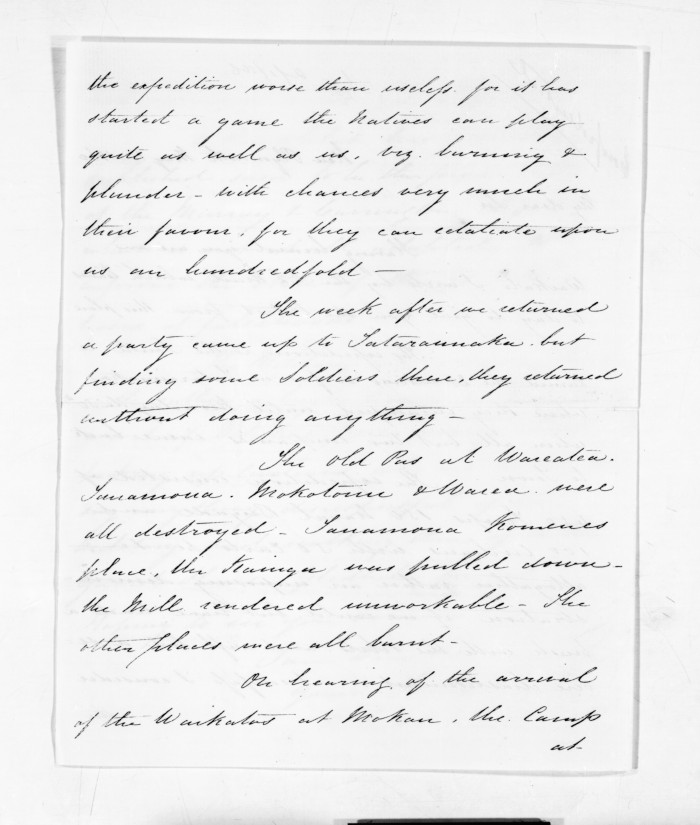 the expedition worse than useless. for it has
started a game the Natives can play
quite as well as us, viz. burning &
plunder - with chances very much in
their favour, for they can retaliate upon
us an hundredfold -
The week after we returned
a party came up to Tataraimaka. but
finding some Soldiers there, they returned
without doing anything -
The old Pas at Wareatea.
Tanamona. Mokotuni & Warea. were
all destroyed - Tanamona Komenes
place, the Kainga was pulled down -
the Mill rendered unworkable - The
other places were all burnt -
On hearing of the arrival
of the Waikatos at Mokau, the Camp
at